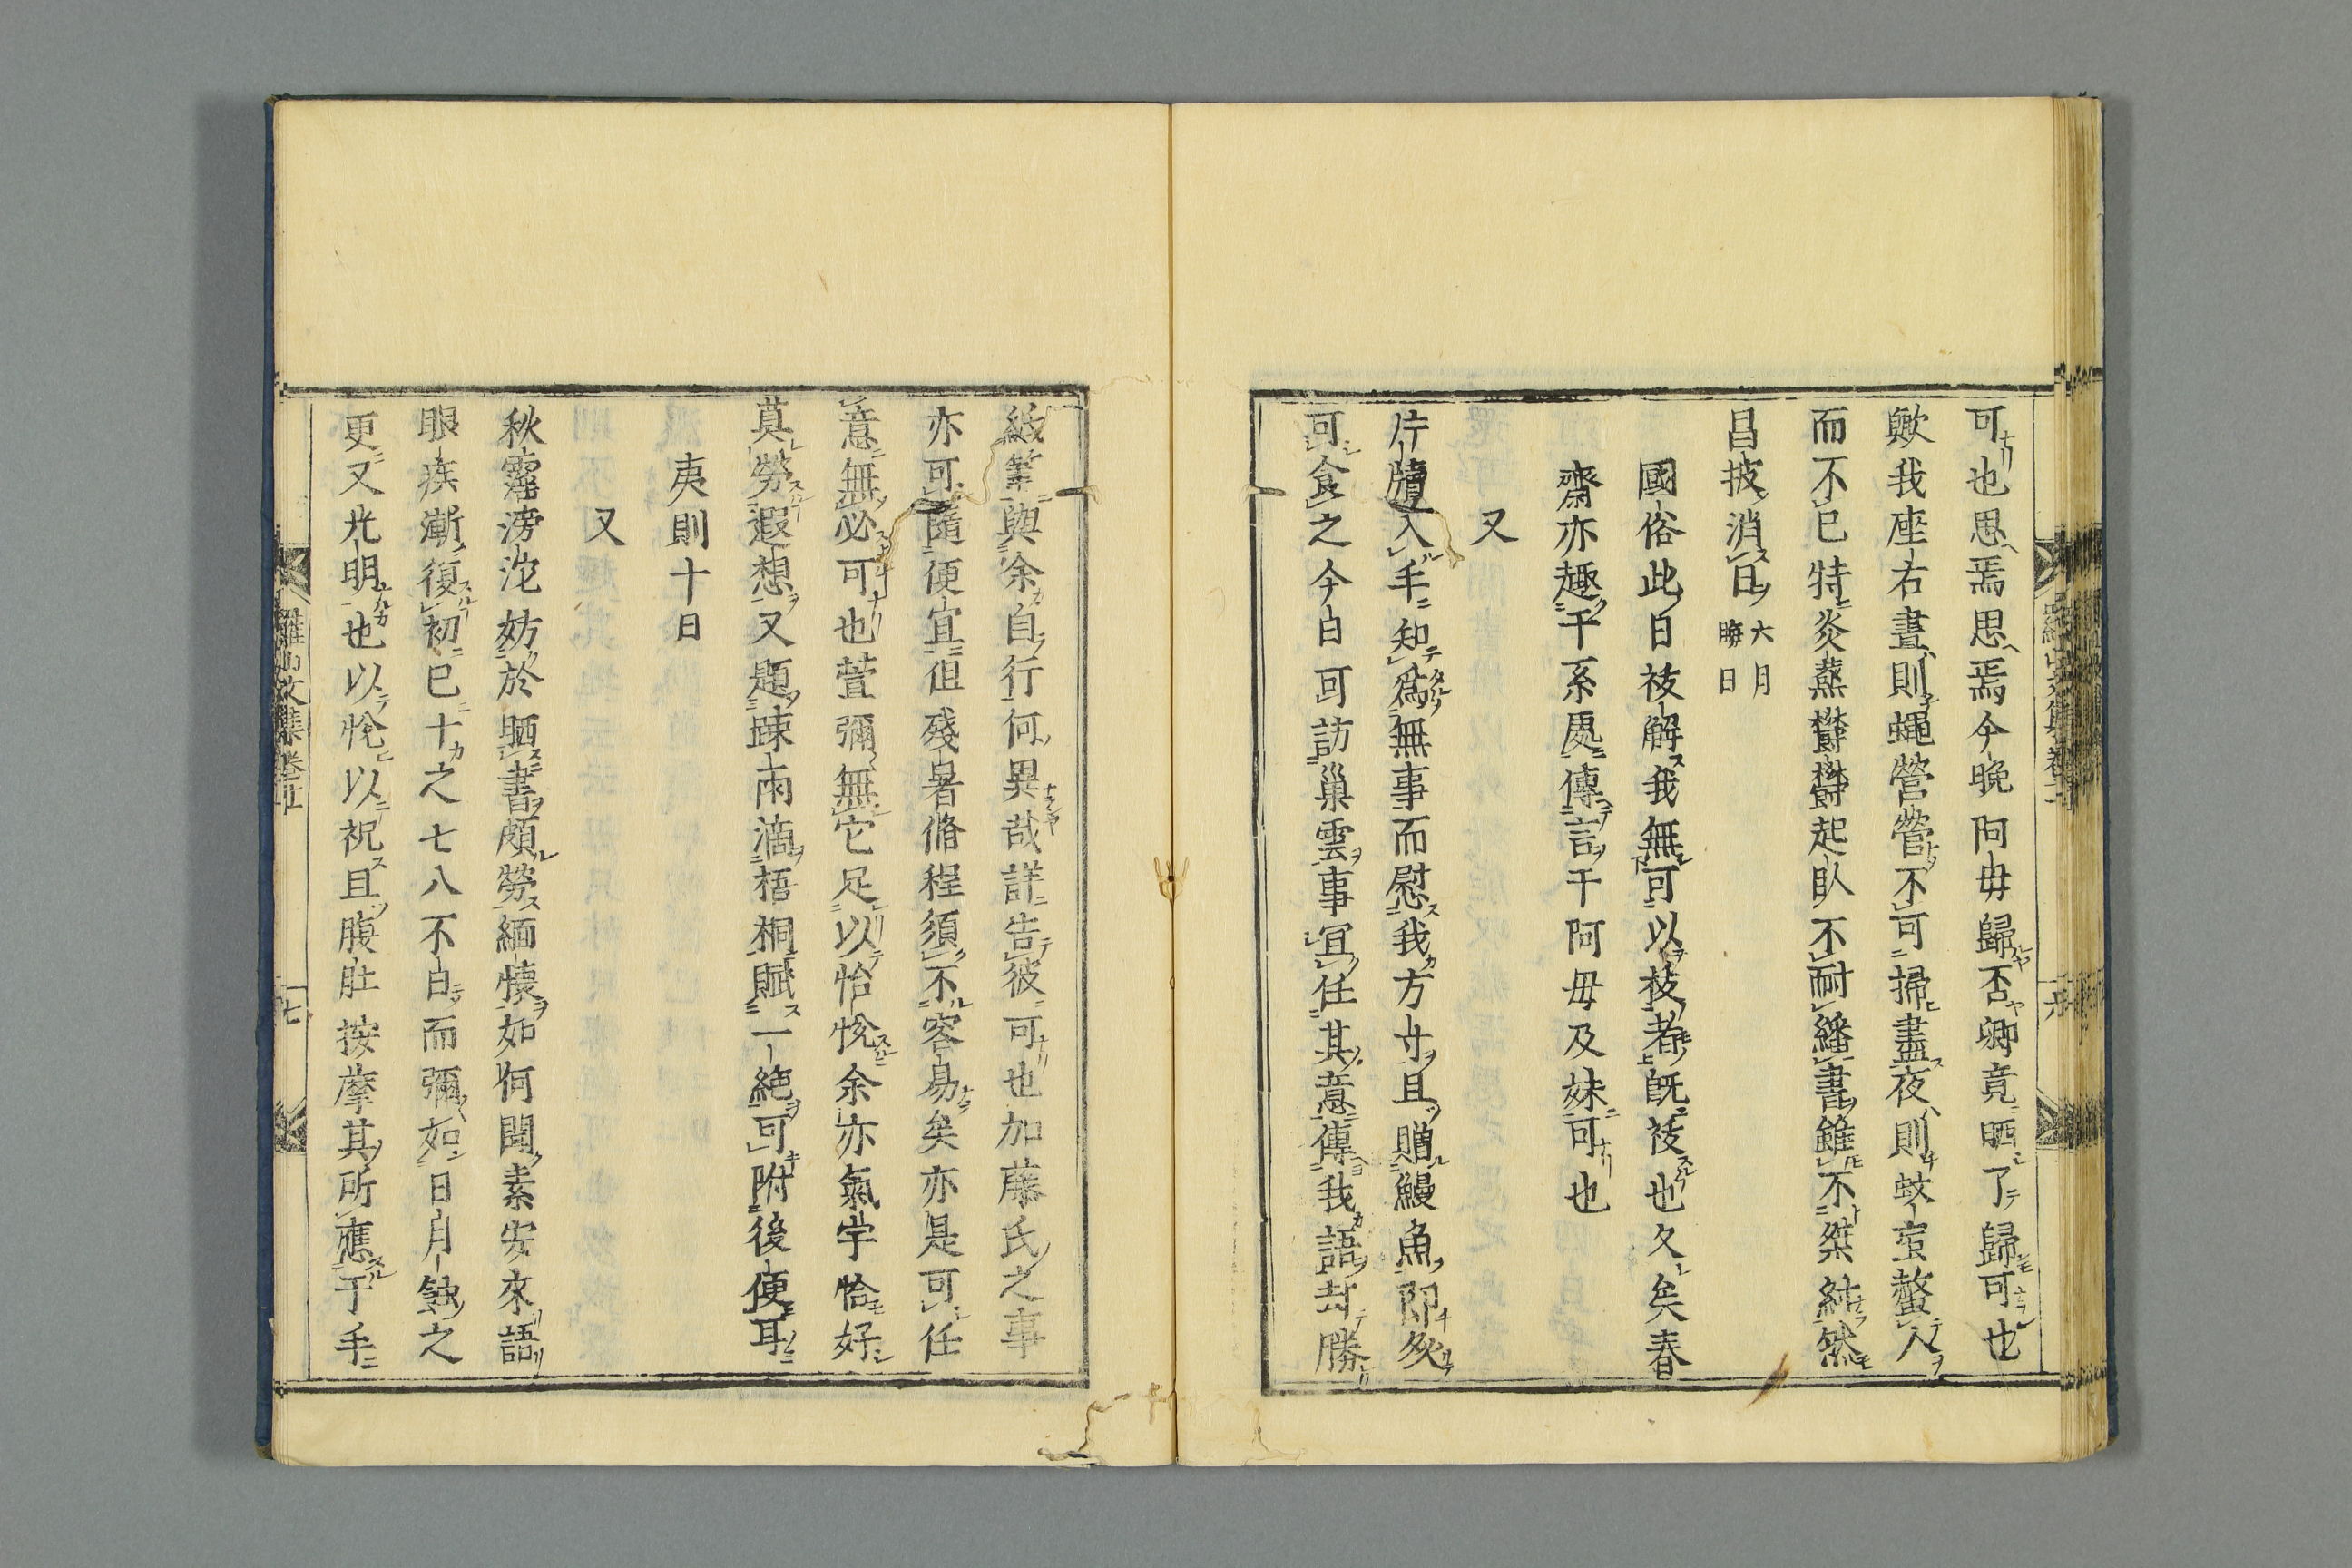 可也思焉思焉今晚阿毋歸否卿竟晒了歸可也
歟我座右晝則蠅營營不可掃盡夜則蚊䖟螫人
而不已特炎蒸欝欝起臥不耐繙書雖不桀紂然
昌披消日六月晦日
國俗此日袚解我無可以袚者既袚也久矣春
齋亦趣干系處傳言干阿毋及妹可也
又
片牘入手知爲無事而慰我方寸且贈鰻魚即炙
可食之今白可訪巢雲事冝任其意傳我語勝
紙筆與余自行何異哉詳告彼可也加藤氏之事
亦可隨便宜徂殘暑脩程須不容易矣亦是可任
意無必可也萱彌無它足以怡悅余亦氣宇恰好
莫勞遐想又題踈雨滴梧桐賦一絶可附後便耳
夷則十日
又
秋霖滂沱妨於晒書頗勞緬懷如何聞素安來語
眼疾漸復初已十之七八不白而彌如日月蝕之
更又光明也以悅以祝且腹肚按摩其所應于手
羅山文集卷二
六
羅山文集卷二
七